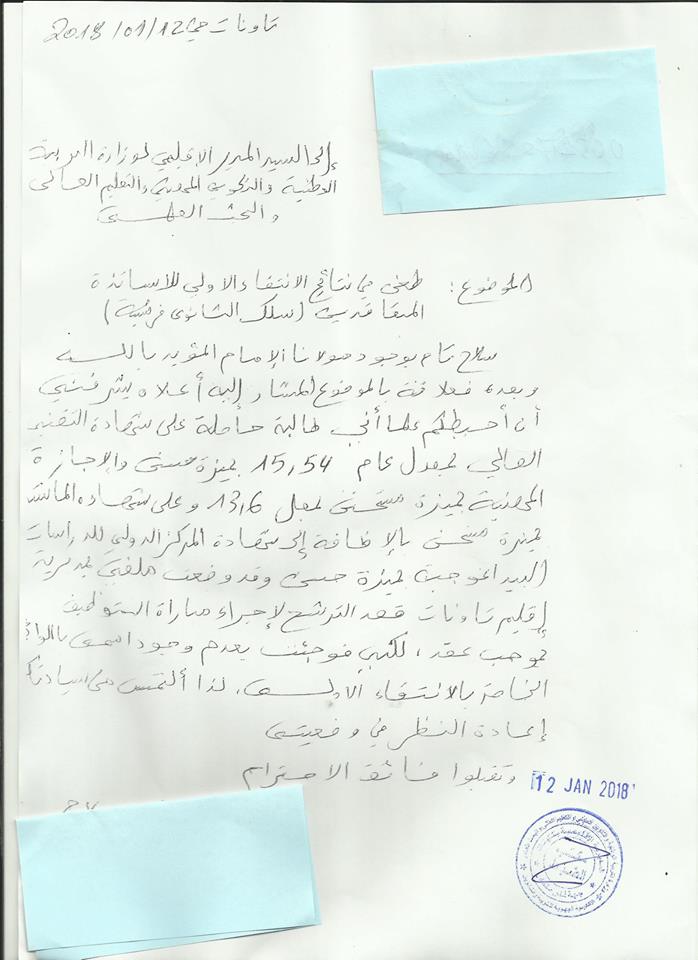 تاونات في 2018/01/12
إلى السيد المدير الإقليمي لوزارة التربية
الوطنية والتكوين المهني والتعليم العالي
والبحث العلمي
الموضوع: طعن في نتائج الانتقاء الاولي للأساتذة
المتعاقدين (سلك الثانوي فرنسية)
سلام تام بوجود مولانا الإمام المؤيد بالله
وبعد، فعلاقة بالموضوع المشار إليه أعلاه يشرفني
أن أحيطكم علما أني طالبة حاصلة على شهادة التقني
العالي بمعدل عام 15,54 بميزة حسن والإجازة
المهنية بميزة مستحسن بمعدل 13,6 وعلى شهادة الماستر
بميزة مستحسن بالإظافة إلى شهادة المركز الدولي للدراسات
البيداغوجية بميزة حسن وقد وضعت ملفي بمديرية
إقليم تاونات قصد الترشح لإجراء مباراة التوظيف
بموجب عقد، لكنني فوجئت بعدم وجود اسمي باللوائح
الخاصة بالانتقاء الاولي. لذا ألتمس من سيادتكم
إعادة النظر في وضعيتي
وتقبلوا فائق الاحترام
12 JAN 2018